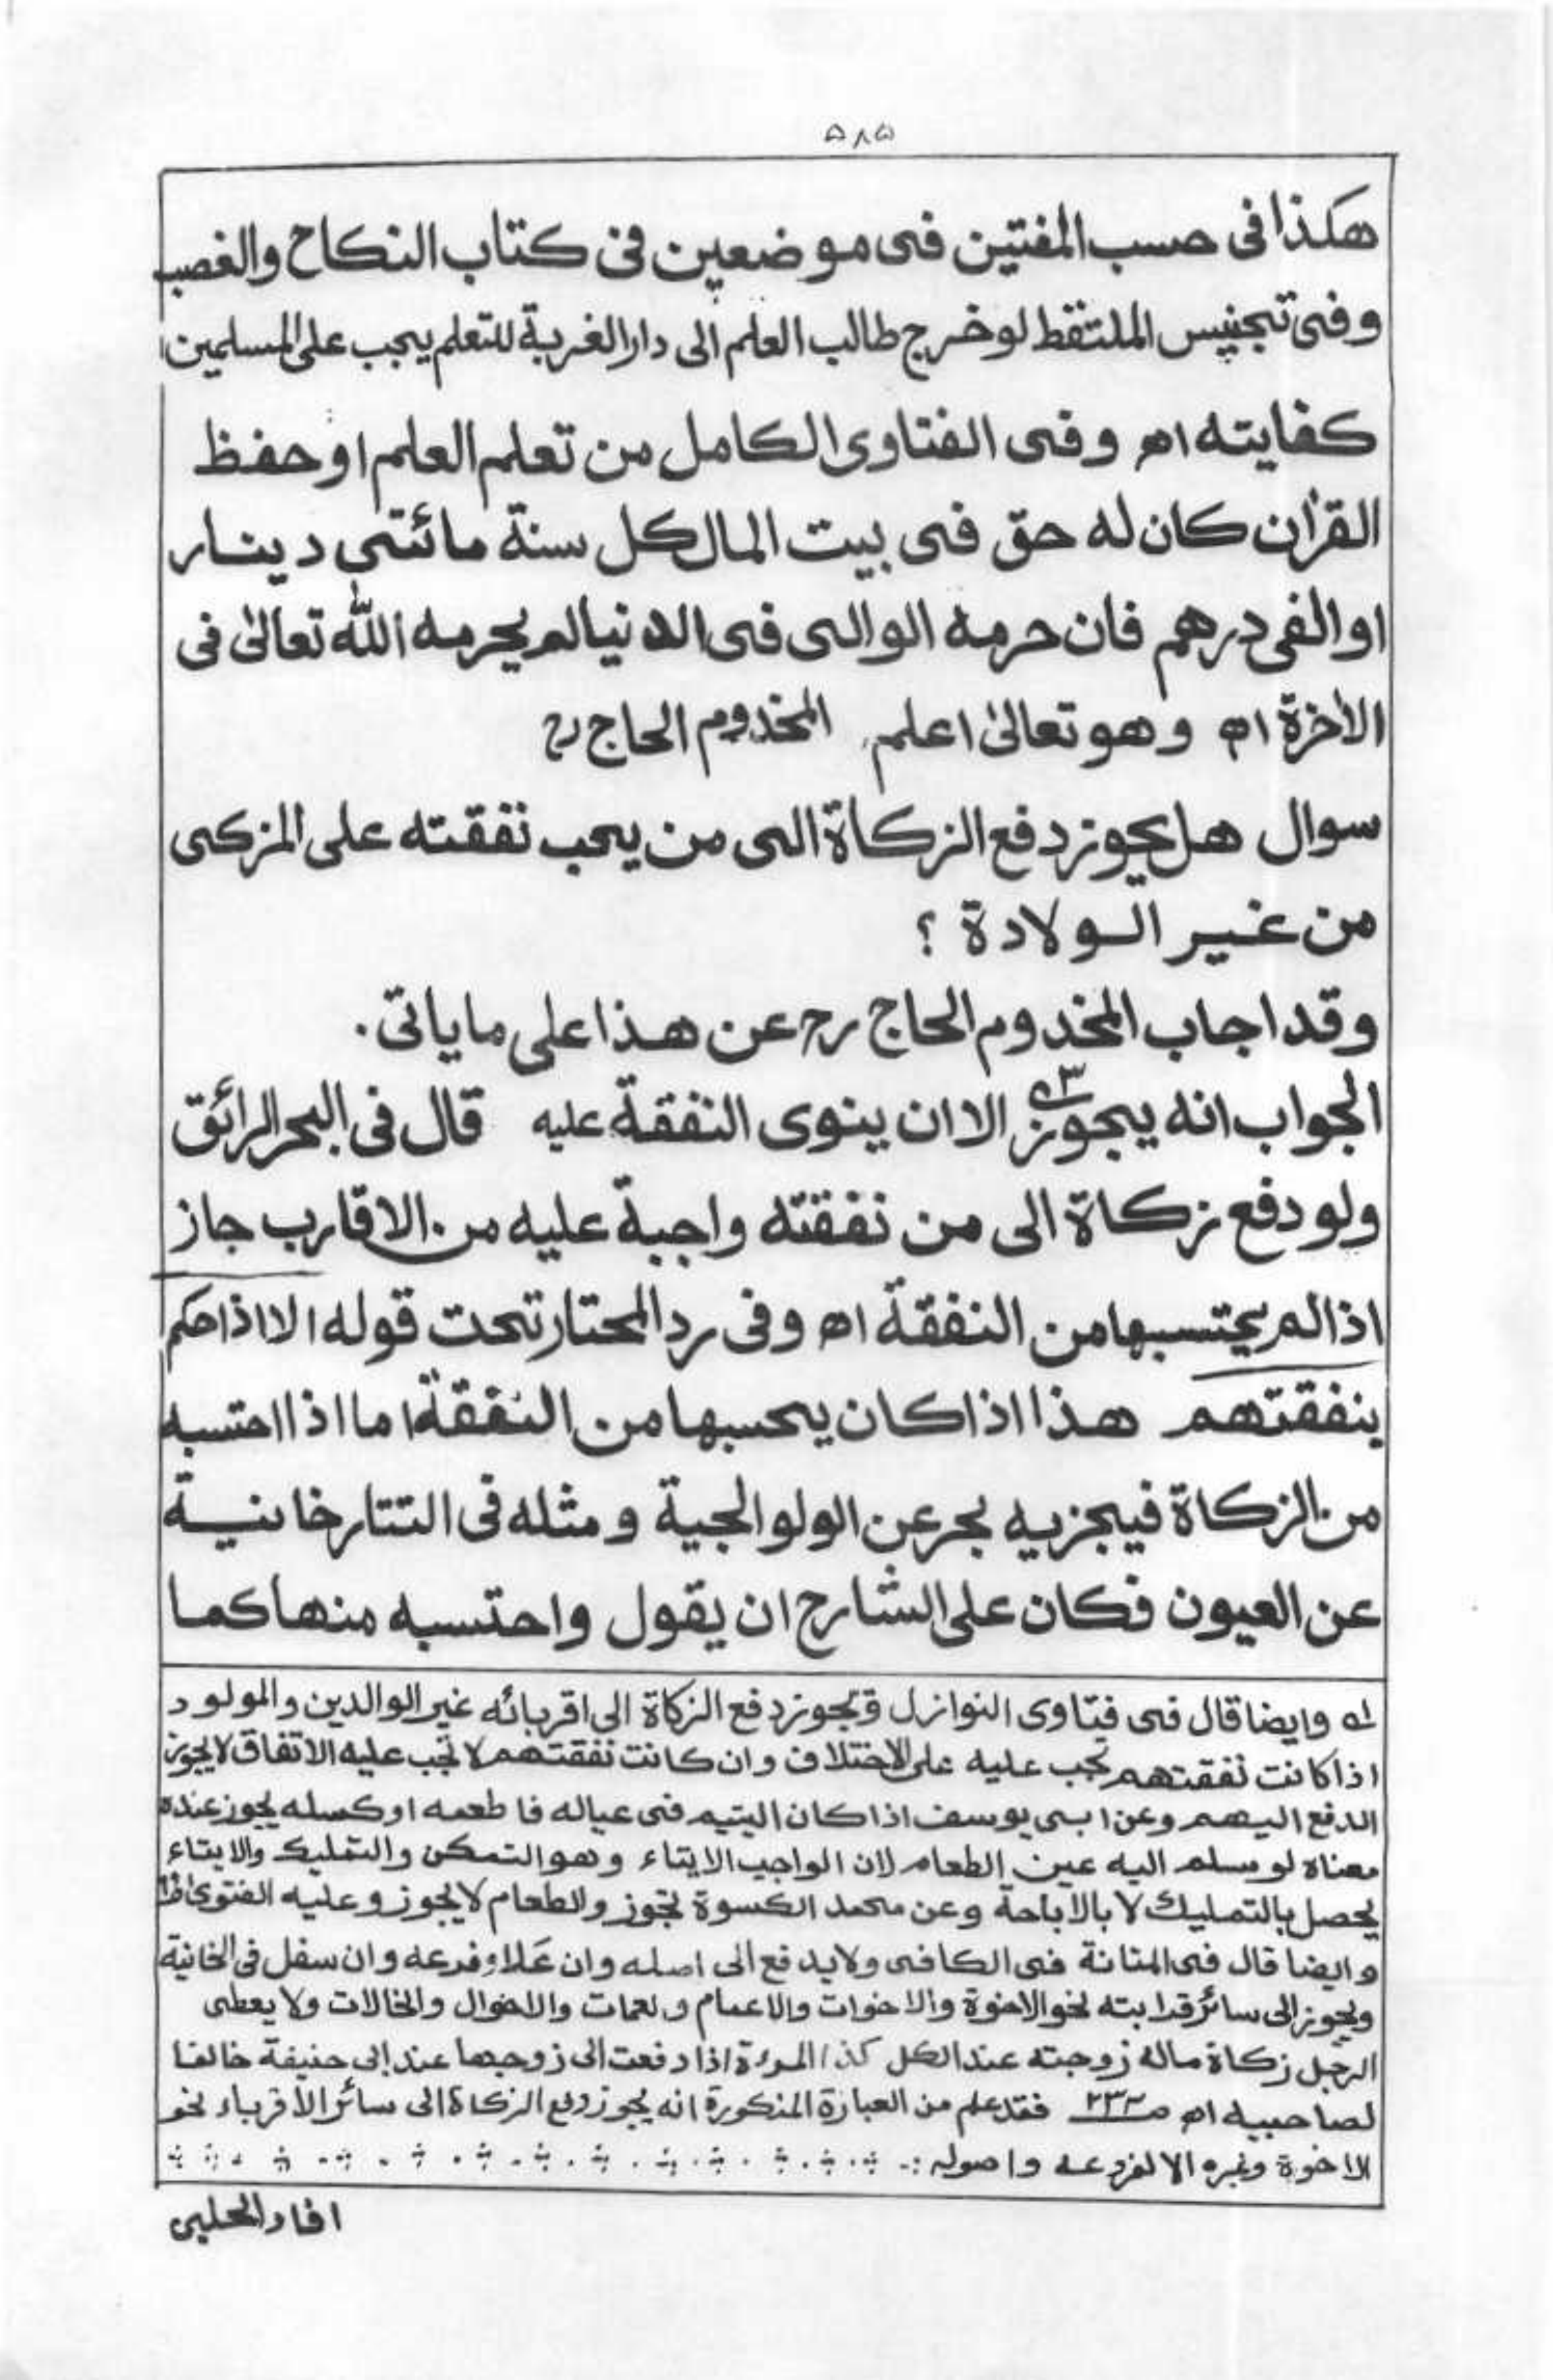 ۵۸۵
هكذا فى حسب المفتين فى موضعين فى كتاب النكاح والغصب
وفى تجنيس الملتقط لو خرج طالب العلم الى دار الغربة للتعلم يجب على المسلمين
كفايته اه وفى الفتاوى الكامل من تعلم العلم او حفظ
القران كان له حق فى بيت المال كل سنة مائتى دينار
او الفى درهم فان حرمه الوالى فى الدنيا لم يحرمه الله تعالىٰ فى
الاخرة اه وهو تعالىٰ اعلم المخدوم الحاج رح
سوال هل يجوز دفع الزكاة الى من يجب نفقته على المزكى
من غير الولادة ؟
وقد اجاب المخدوم الحاج رح عن هذا على ما ياتى .
الجواب انه يجوز الا ان ينوى النفقة عليه قال فى البحر الرائق
ولو دفع زكاة الى من نفقته واجبة عليه من الاقارب جاز
اذا لم يحتسبها من النفقة اه وفى رد المحتار تحت قوله الا اذا حكم
بنفقتهم هذا اذا كان يحسبها من النفقة اما اذا احتسبه
من الزكاة فيجزيه بحر عن الولوالجية ومثله فى التتارخانية
عن العيون فكان على الشارح ان يقول واحتسبه منها كما
له وايضا قال فى فتاوى النوازل ويجوز دفع الزكاة الى اقربائه غير الوالدين والمولود
اذا كانت نفقتهم تجب عليه على الاختلاف وان كانت نفقتهم لا تجب عليه الاتفاق لا يجوز
الدفع اليهم وعن ابى يوسف اذا كان اليتيم فى عياله فاطعمه او كسله يجوز عنده
معناه لو سلم اليه عين الطعام لان الواجب الايتاء وهو التمكن والتمليك والايتاء
يحصل بالتمليك لا بالاباحة وعن محمد الكسوة تجوز والطعام لا يجوز وعليه الفتوى
وايضا قال فى المتانة فى الكافى ولا يدفع الى اصله وان علا وفرعه وان سفل فى الخانية
ويجوز الى سائر قرابته نحو الاخوة والاخوات والاعمام والعمات والاخوال والخالات ولا يعطى
الرجل زكاة ماله زوجته عند الكل كذا المرءة اذا دفعت الى زوجها عند ابى حنيفة خالفا
لصاحبيه اه فقد علم من العبارة المذكورة انه يجوز دفع الزكاة الى سائر الاقرباء نحو
الاخوة وغيره الا لفروعه واصوله :-
افاد الحلبى